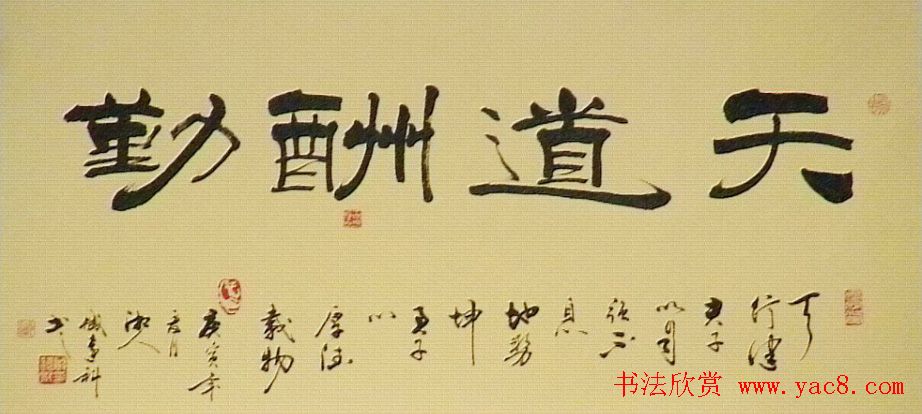 天道酬勤
天
行健
君子
以自
强不
息
地勢
坤
君子
以
厚德
載物
庚寅年
月
湘人
书
书法欣赏 www.yac8.com